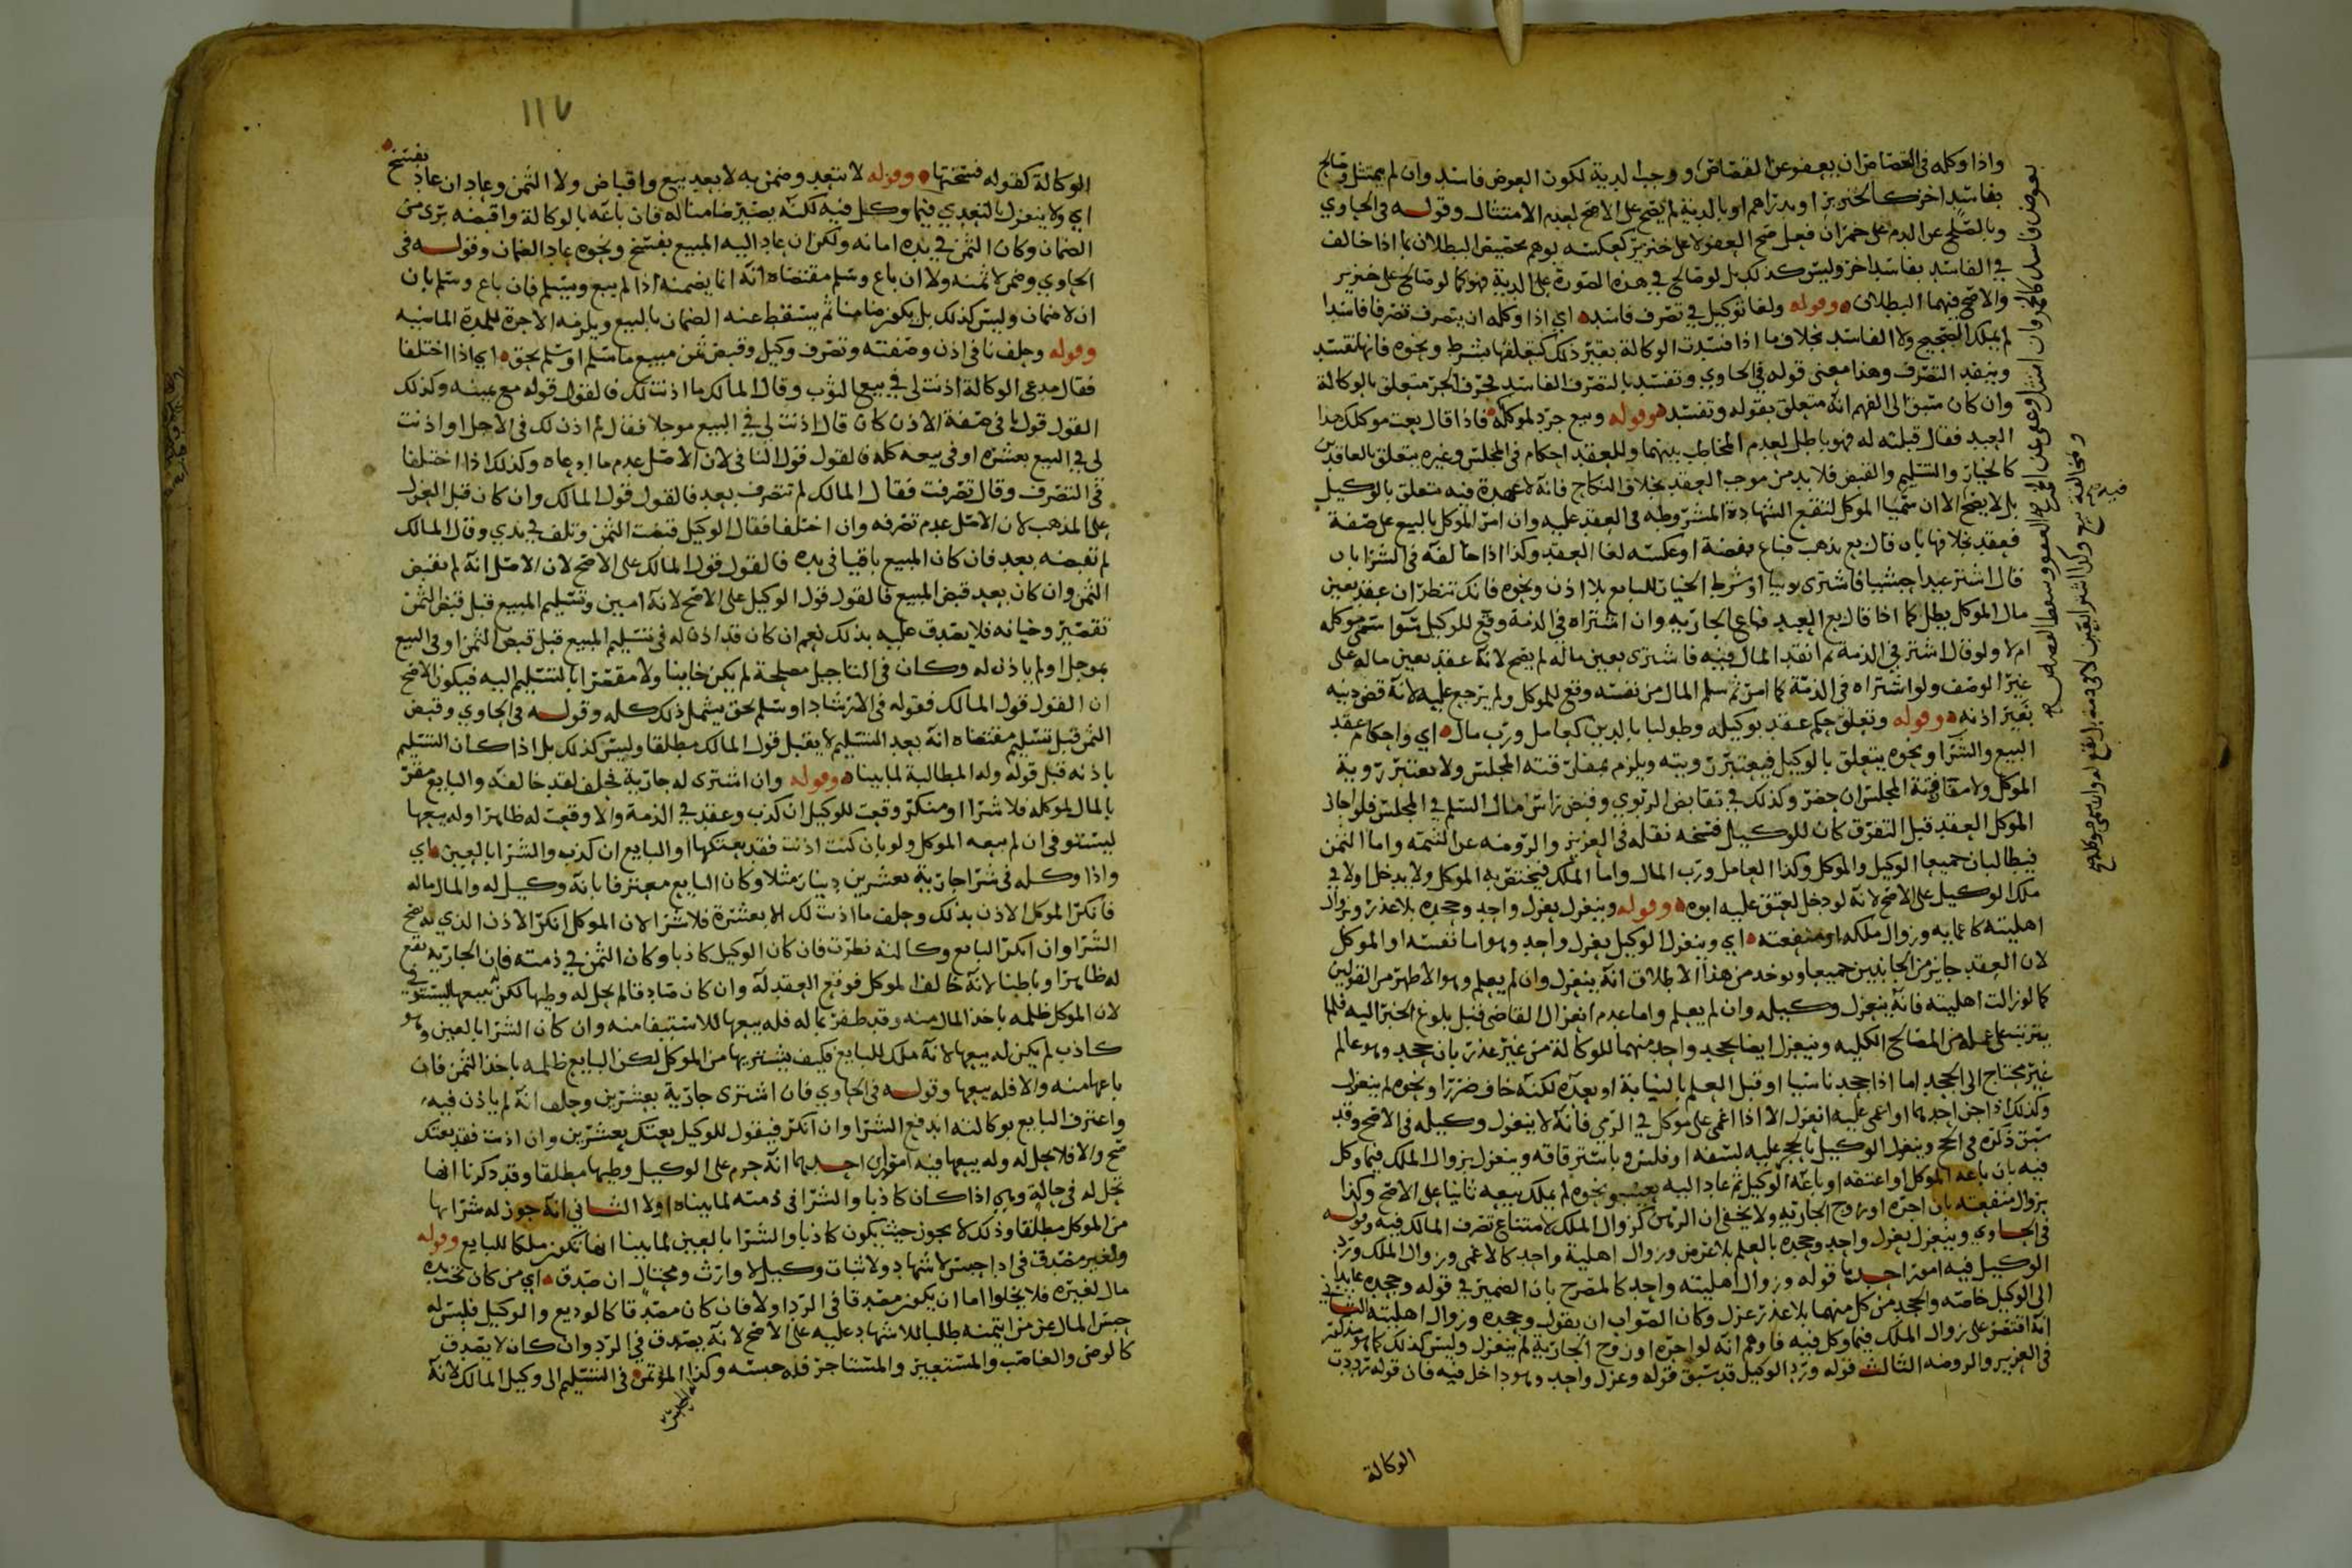 واذا وكله فى القصاص ان يعفو عن القصاص ووجب الدية لكون العوض فاسد وان لم يمتثل وصالح
بفاسد اخر كالخنزير او بدراهم او بالدية لم يصح على الاصح لعدم الامتثال وقوله فى الحاوي
وبالصلح عن الدم على خمر ان فعل صح العفو لا على خنزير كعكسه يوهم تحقيق البطلان بما اذا خالف
في الفاسد بفاسد اخر وليس كذلك بل لو صالح في هذه الصورة على الدية فهو كما لو صالح على خنزير
والاصح فيهما البطلان وقوله ولغا توكيل في تصرف فاسد اي اذا وكله ان يتصرف تصرفا فاسدا
لم يملك الصحيح ولا الفاسد بخلاف ما اذا فسدت الوكالة بغير ذلك كتعلقها بشرط ونحوه فانها تفسد
وينفذ التصرف وهذا معنى قوله في الحاوي وتفسد بالتصرف الفاسد فحرف الجر متعلق بالوكالة
وان كان سبق الى الفهم انه متعلق بقوله وتفسد وقوله وبيع جرد لموكله فاذا قال بعت موكلك هذا
العبد فقال قبلته له فهو باطل لعدم المخاطب بينهما وللعقد احكام فى المجلس وغيره يتعلق بالعاقدين
كالخيار والتسليم والقبض فلا بد من موجب العقد بخلاف النكاح فانه لا عهدة فيه متعلق بالوكيل
بل لا يصح الا ان سميا الموكل لتقع الشهادة المشروطه فى العقد عليه وان امر الموكل بالبيع على صفة
فعقد بخلافها بان قال بع بذهب فباع بفضة او عكسه لغا العقد وكذا اذا خالفه فى الشراء بان
قال اشتر عبدا حبشيا فاشترى نوبيا او شرط الخيار للبايع بلا اذن ونحوه فانك تنظر ان عقد بعين
مال الموكل بطل كما اذا قال بع العبد فباع الجاريه وان اشتراه فى الذمة وقع للوكيل سوا سمى موكله
ام لا ولو قال اشتر في الذمة ثم انقد المال فيه فاشترى بعين ماله لم يصح لانه عقد بعين ماله على
غير الوصف ولو اشتراه فى الذمة كما امر ثم سلم المال من نفسه وقع للموكل ولم يرجع عليه لانه قضى دينه
بغير اذنه وقوله وتعلق حكم عقد بوكيله وطولبا بالدين كعامل ورب مال اي واحكام عقد
البيع والشرا ونحوه يتعلق بالوكيل فيعتبر رويته ويلزم بمفارقته المجلس ولا يعتبر روية
الموكل ولا مفارقة المجلس ان حضر وكذلك في تقابض الربوي وقبض راس مال السلم في المجلس فلو اجاز
الموكل العقد قبل التفرق كان للوكيل فسخه نقله فى العزيز والروضه عن التتمه واما الثمن
فيطالبان جميعا الوكيل والموكل وكذا العامل ورب المال واما الملك فيختص به الموكل ولا يدخل اولا في
ملك الوكيل على الاصح لانه لو دخل لعتق عليه ابوه وقوله وينعزل بعزل واحد وجحده بلا عذر وزوال
اهليته كاغمايه وزوال ملكه او منفعته اي وينعزل الوكيل بعزل واحد وهو اما نفسه او الموكل
لان العقد جايز من الجانبين جميعا ويوخذ من هذا الاطلاق انه ينعزل وان لم يعلم وهو الاظهر من القولين
كما لو زالت اهليته فانه ينعزل وكيله وان لم يعلم واما عدم انعزال القاضى قبل بلوغ الخبر اليه فلما
يترتب على عمله من المصالح الكليه وينعزل ايضا بجحد واحد منهما للوكالة من غير عذر بان جحد وهو عالم
غير محتاج الى الجحد اما اذا جحد ناسيا او قبل العلم بالنيابة او بعده لكنه خاف ضررا ونحوه لم ينعزل
وكذلك اذا جن احدهما او اغمى عليه انعزل الا اذا اغمى على موكل في الرمي فانه لا ينعزل وكيله فى الاصح وقد
سبق ذكره فى الحج وينعزل الوكيل بالحجر عليه لسفه او فلس وباسترقاقه وينعزل بزوال الملك فيما وكل
فيه بان باعه الموكل او اعتقه او باعه الوكيل ثم عاد اليه بعيب ونحوه لم يملك بيعه ثانيا على الاصح وكذا
بزوال منفعته بان اجره او زوج الجاريه ولا يخفى ان الرهن كزوال الملك لامتناع تصرف المالك فيه وقوله
فى الحاوي وينعزل بعزل واحد وجحده بالعلم بلا غرض وزوال اهلية واحد كالاغمى وزوال الملك ورد
الوكيل فيه امور احدها قوله وزوال اهليته واحد كالمصرح بان الضمير في قوله وجحده عايد
الى الوكيل خاصه والجحد من كل منهما بلا عذر عزل وكان الصواب ان يقول وجحده وزوال اهليته الثاني
انه اقتصر على زوال الملك فيما وكل فيه فاوهم انه لو اجره او زوج الجارية لم ينعزل وليس كذلك كما هو مذكور
فى العزيز والروضه الثالث قوله ورد الوكيل قد سبق قوله وعزل واحد وهو داخل فيه فان قوله رددت
الوكالة
١١٧
الوكالة كقوله فسختها وقوله لا بتعد وضمن به لا بعد بيع واقباض ولا الثمن وعاد ان عاد بفسخ
اي ولا ينعزل بالتعدي فيما وكل فيه لكنه يصير ضامنا له فان باعه بالوكالة واقبضه برى من
الضمان وكان الثمن في يده امانه ولكن ان عاد اليه المبيع بفسخ ونحوه عاد الضمان وقوله فى
الحاوي وضمن لا ثمنه ولا ان باع وسلم مقتضاه انه انما يضمنه اذا لم يبع ويسلم فان باع وسلم بان
ان لا ضمان وليس كذلك بل يكون ضامنا ثم يسقط عنه الضمان بالبيع ويلزمه الاجرة للمدة الماضيه
وقوله وحلف نافى اذن وصفته وتصرف وكيل وقبض ثمن مبيع ما سلم او سلم بحق اي اذا اختلفا
فقال مدعى الوكالة اذنت لى في بيع الثوب وقال المالك ما اذنت لك فالقول قوله مع يمينه وكذلك
القول قول نافى صفة الاذن كان قال اذنت لي في البيع موجلا فقال لم اذن لك فى الاجل او اذنت
لى في البيع بعشره او فى بيعه كله فالقول قول النافى لان الاصل عدم ما ادعاه وكذلك اذا اختلفا
في التصرف وقال تصرفت فقال المالك لم تتصرف بعد فالقول قول المالك وان كان قبل العزل
على المذهب لان الاصل عدم تصرفه وان اختلفا فقال الوكيل قبضت الثمن وتلف في يدي وقال المالك
لم تقبضه بعد فان كان المبيع باقيا فى يده فالقول قول المالك على الاصح لان الاصل انه لم يقبض
الثمن وان كان بعد قبض المبيع فالقول قول الوكيل على الاصح لانه امين وتسليم المبيع قبل قبض الثمن
تقصير وخيانه فلا يصدق عليه بذلك نعم ان كان قد اذن له فى تسليم المبيع قبل قبض الثمن او فى البيع
بموجل او لم ياذن له وكان فى التاجيل مصلحة لم يكن خاينا ولا مقصرا بالتسليم اليه فيكون الاصح
ان القول قول المالك فقوله فى الارشاد او سلم بحق يشمل ذلك كله وقوله فى الحاوي وقبض
الثمن قبل تسليم مقتضاه انه بعد التسليم لا يقبل قول المالك مطلقا وليس كذلك بل اذا كان التسليم
باذنه قبل قوله وله المطالبة لما بينا وقوله وان اشترى له جارية فحلف لقد خالفه والبايع مقر
بالمال لموكله فلا شرا او منكر وقعت للوكيل ان كذب وعقد في الذمة والا وقعت له ظاهرا وله بيعها
ليستوفى ان لم يبعه الموكل ولو بان كنت اذنت فقد بعتكها او البايع ان كذب والشرا بالعين اي
واذا وكله فى شرا جارية بعشرين دينار مثلا وكان البايع معترفا بانه وكيل له والمال ماله
فانكر الموكل الاذن بذلك وحلف ما اذنت لك الا بعشرة فلا شرا لان الموكل انكر الاذن الذي به يصح
الشرا وان انكر البايع وكالته نظرت فان كان الوكيل كاذبا وكان الثمن في ذمته فان الجارية يقع
له ظاهرا وباطنا لانه خالف الموكل فوقع العقد له وان كان صادقا لم يحل له وطيها لكن له بيعها ليستوفي
لان الموكل ظلمه باخذ المال منه وقد ظفر بما له فله بيعها للاستيفا منه وان كان الشرا بالعين وهو
كاذب لم يكن له بيعها لانه ملك للبايع فكيف يشتريها من الموكل لكن البايع ظلمه باخذ الثمن فان
باعها منه والا فله بيعها وقوله فى الحاوي فان اشترى جارية بعشرين وحلف انه لم ياذن فيه
واعترف البايع بوكالته اندفع الشرا وان انكر فيقول للوكيل بعتك بعشرين وان اذنت فقد بعتك
صح والا فلا يحل له وله بيعها فيه امور احدهما انه حرم على الوكيل وطيها مطلقا وقد ذكرنا انها
تحل له فى حالة وهي اذا كان كاذبا والشرا فى ذمته لما بيناه اولا الثاني انه جوز له شراها
من الموكل مطلقا وذلك لا يجوز حيث يكون كاذبا والشرا بالعين لما بينا انها تكون ملكا للبايع وقوله
ولغير مصدق فى ادا حبس لاشهاد ولاثبات وكيل لا وارث ومحتال ان صدق اي من كان تحت يده
مال لغيره فلا يخلوا اما ان يكون مصدقا فى الرد اولا فان كان مصدقا كالوديع والوكيل فليس له
حبس المال عن من ايتمنه طلبا للاشهاد عليه على الاصح لانه يصدق في الرد وان كان لا يصدق
كالوصى والغاصب والمستعير والمستاجر فله حبسه وكذا المؤتمن فى التسليم الى وكيل المالك لانه